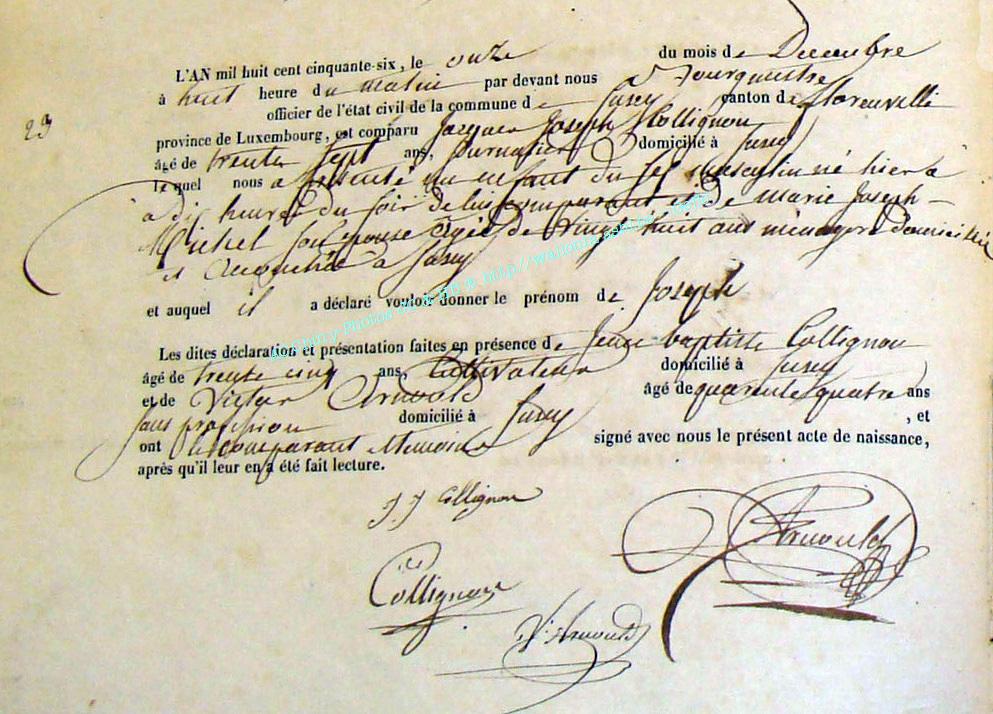 L'AN mil huit cent cinquante-six, le onze du mois de Decembre
à huit heure du matin par devant nous Bourgmestre
officier de l'état civil de la commune de Jusey canton de florenville
23
province de Luxembourg, est comparu Jacques Joseph Collignon
âgé de trente sept ans, journalier domicilié à Jusey
lequel nous a présenté un enfant du sexe masculin né hier a
a dix heures du soir de lui comparant et de marie Joseph
Michel son épouse agée de vingt huit ans ménagere domiciliée
et accouchée a Jusey
et auquel il a déclaré vouloir donner le prénom de Joseph
Les dites déclaration et présentation faites en présence de Jean baptiste Collignon
âgé de trente cinq ans, Cultivateur domicilié à Jusey
et de Victor Arnould âgé de quarente quatre ans
sans profession domicilié à Jusey , et
ont le comparant et temoins signé avec nous le présent acte de naissance,
après qu'il leur en a été fait lecture.
J. J Collignon
Arnould
Collignon
V. Arnould